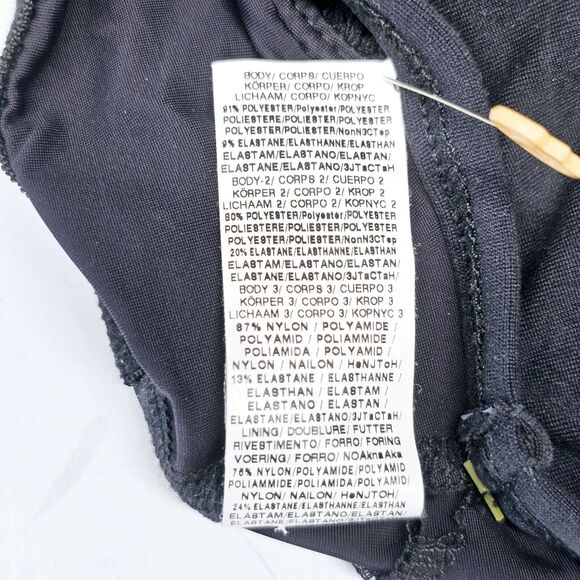 BODY/ CORPS/ CUERPO
KÖRPER/ CORPO/ KROP
LICHAAM/ CORPO/ KOPNYC
91% POLYESTER/Polyester/POLYESTER
POLIESTERE/POLIESTER/POLIESTER
POLYESTER/POLYESTER/NonN3CTep
9% ELASTANE/ELASTHANNE/ELASTHAN
ELASTAM/ELASTANO/ELASTAN/
ELASTANE/ELASTANO/3JTaCTaH
BODY-2/ CORPS 2/ CUERPO 2
KÖRPER 2/ CORPO 2/ KROP 2
LICHAAM 2/ CORPO 2/ KOPNYC 2
80% POLYESTER/Polyester/POLYESTER
POLIESTERE/POLIESTER/POLIESTER
POLYESTER/POLYESTER/NonN3CTep
20% ELASTANE/ELASTHANNE/ELASTHAN
ELASTAM/ELASTANO/ELASTAN/
ELASTANE/ELASTANO/3JTaCTaH/
BODY 3/ CORPS 3/ CUERPO 3
KÖRPER 3/ CORPO 3/ KROP 3
LICHAAM 3/ CORPO 3/ KOPNYC 3
87% NYLON / POLYAMIDE /
POLYAMID / POLIAMMIDE /
POLIAMIDA / POLYAMID /
NYLON / NAILON / HeNJToH/
13% ELASTANE / ELASTHANNE /
ELASTHAN / ELASTAM /
ELASTANO / ELASTAN /
ELASTANE/ELASTANO/3JTaCTaH/
LINING/ DOUBLURE/ FUTTER
RIVESTIMENTO/ FORRO/ FORING
VOERING/ FORRO/ NOAknaAka
76% NYLON/POLYAMIDE/POLYAMID
POLIAMMIDE/POLIAMIDA/POLYAMID/
NYLON/ NAILON/ HeNJTOH/
24% ELASTANE/ELASTHANNE/ELASTHAN
ELASTAM/ELASTANO/ELASTAN/